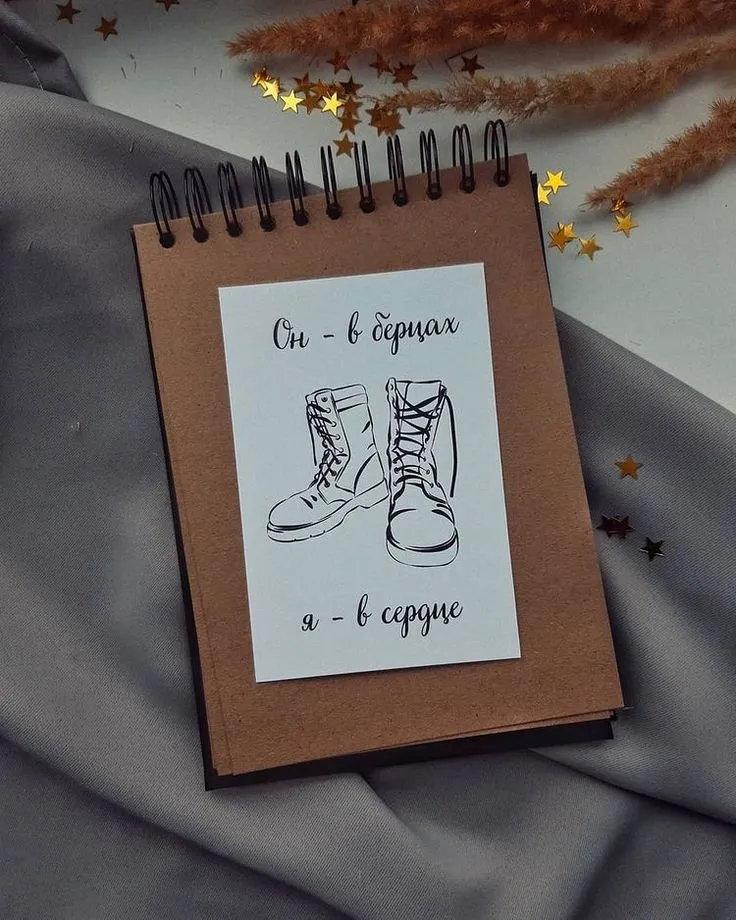 Он - в берцах
я - в сердце